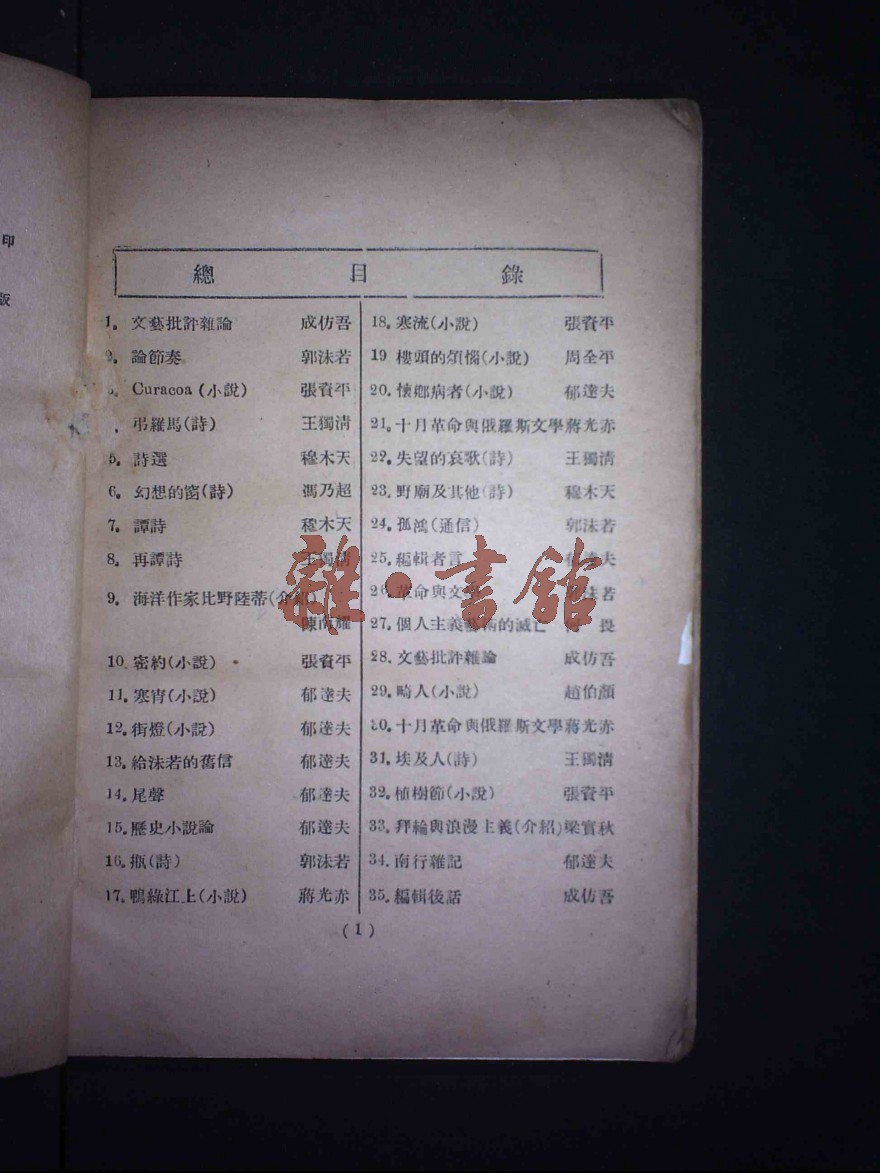 印
版
總目錄
1。文藝批評雜論 成仿吾
2。論節奏。 郭沫若
3。Curacoa (小說) 張資平
。弔羅馬(詩) 王獨清
5。詩選 穆木天
6。幻想的窗(詩) 馮乃超
7。譚詩 穆木天
8。再譚詩 王獨清
9。海洋作家比野陸蒂(介紹)
陳南耀
10。密約(小說) 張資平
11。寒宵(小說) 郁達夫
12。街燈(小說) 郁達夫
13。給沫若的舊信 郁達夫
14。尾聲 郁達夫
15。歷史小說論 郁達夫
16。瓶(詩) 郭沫若
17。鴨綠江上(小說) 蔣光赤
18。寒流(小說) 張資平
19 樓頭的煩惱(小說) 周全平
20。懷鄉病者(小說) 郁達夫
21。十月革命與俄羅斯文學蔣光赤
22。失望的哀歌(詩) 王獨清
23。野廟及其他(詩) 穆木天
24。孤鴻(通信) 郭沫若
25。編輯者言 郁達夫
26。革命與文 沫若
27。個人主義藝術的滅亡 畏
28。文藝批評雜論 成仿吾
29。畸人(小說) 趙伯顏
30。十月革命與俄羅斯文學蔣光赤
31。埃及人(詩) 王獨清
32。植樹節(小說) 張資平
33。拜輪與浪漫主義(介紹)梁實秋
34。南行雜記 郁達夫
35。編輯後話 成仿吾
(1)
雜·書館